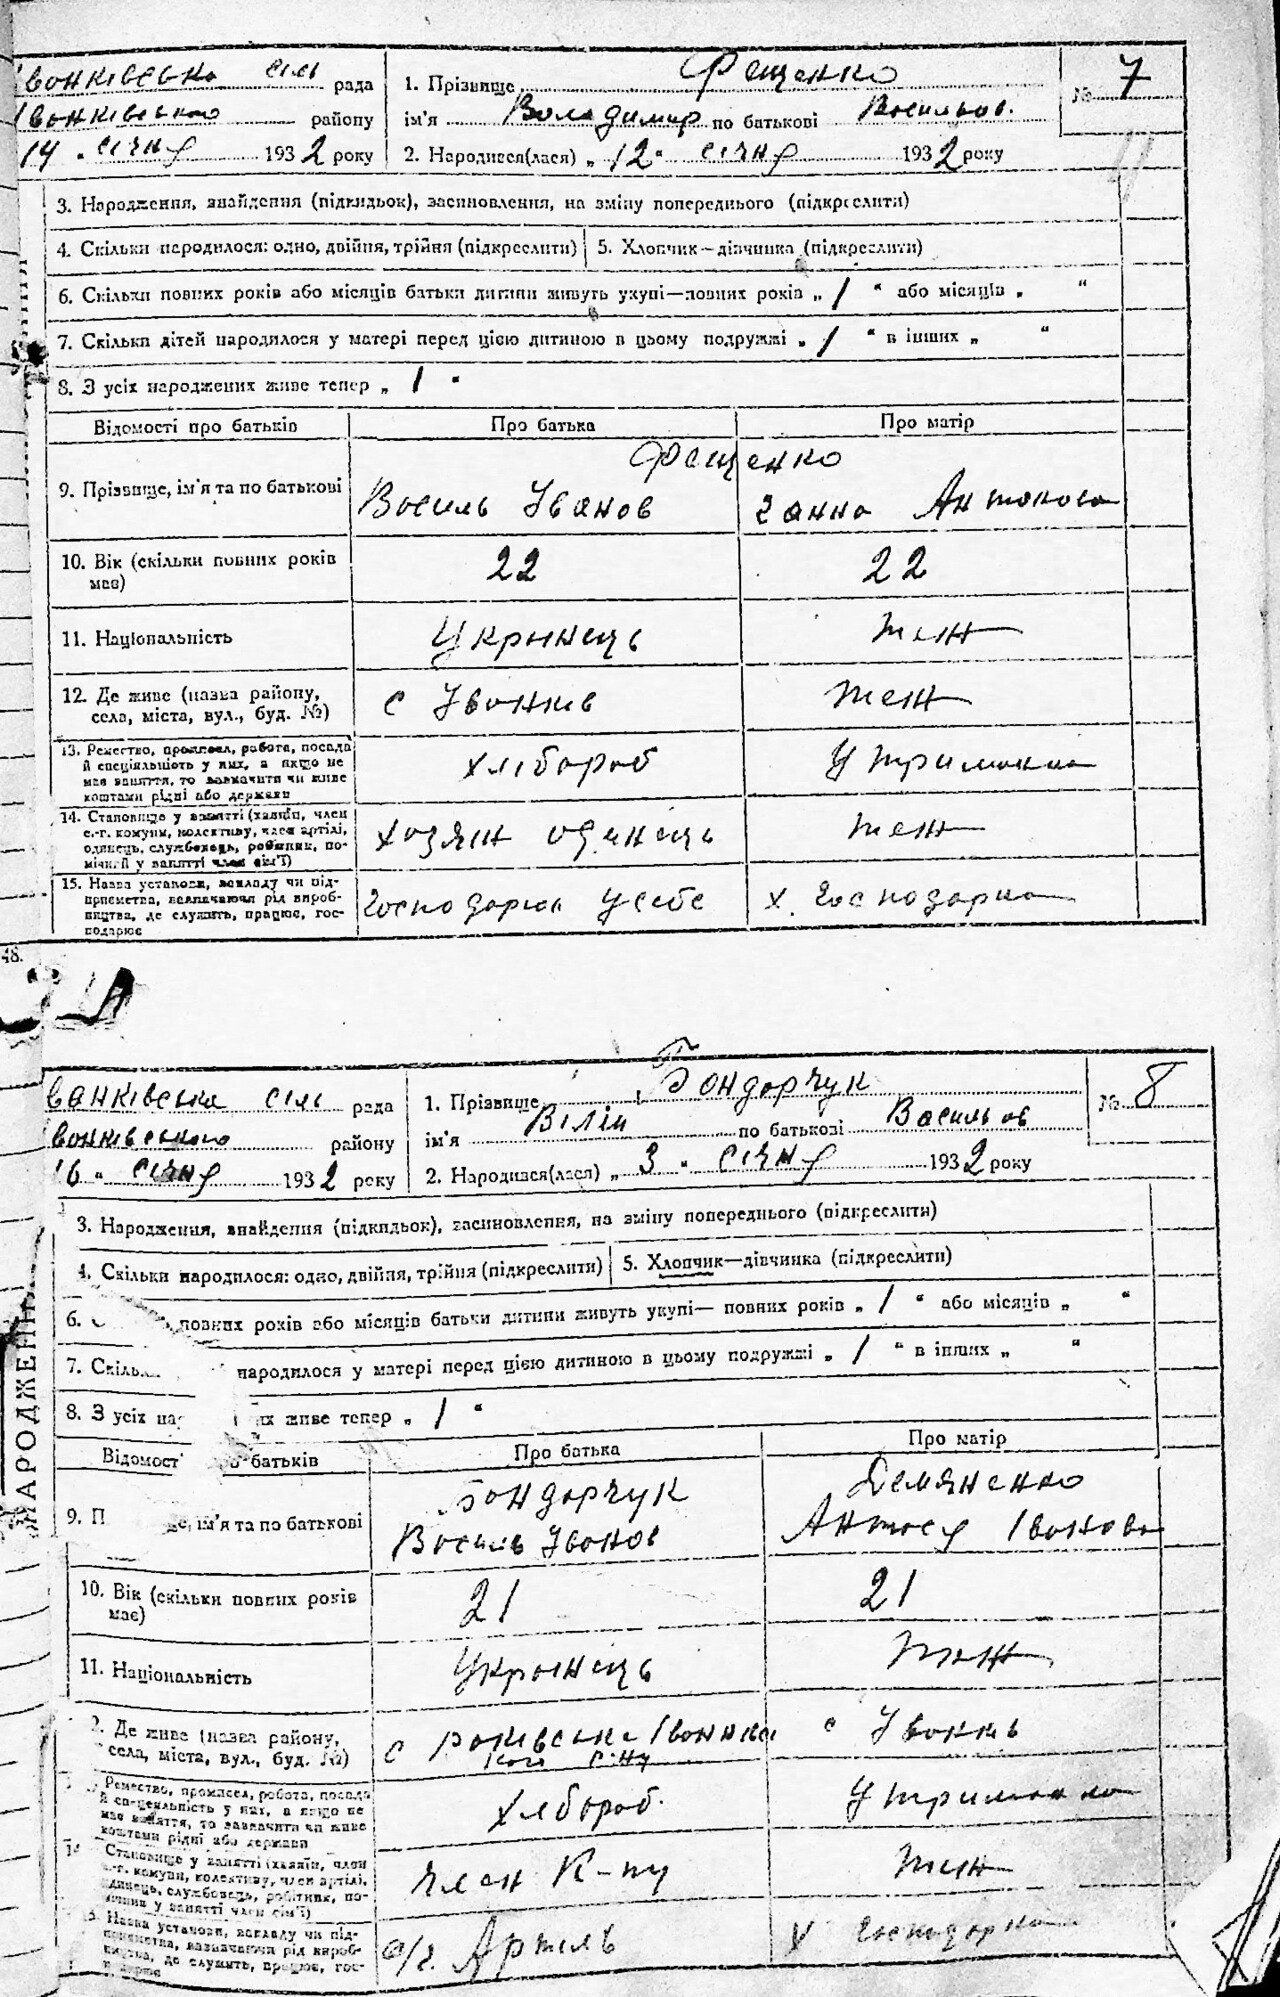 Іванківська сіль рада
Іванківського району
14 " січня 1932 року
1. Прізвище Фещенко
ім'я Володимир по батькові Васильов.
2. Народився(лася) „ 12 " січня 1932 року
№ 7
3. Народження, знайдення (підкидьок), засиновлення, на зміну попереднього (підкреслити)
4. Скільки народилося: одно, двійня, трійня (підкреслити) 5. Хлопчик—дівчинка (підкреслити)
6. Скільки повних років або місяців батьки дитини живуть укупі—повних років „ 1 " або місяців „ "
7. Скільки дітей народилося у матері перед цією дитиною в цьому подружжі „ 1 " в інших „ "
8. З усіх народжених живе тепер „ 1 "
Відомості про батьків Про батька Про матір
Фещенко
9. Прізвище, ім'я та по батькові Василь Іванов Ганна Антонова
10. Вік (скільки повних років 22 22
має)
11. Національність Українець теж
12. Де живе (назва району, с Іванків теж
села, міста, вул., буд. №)
13. Ремество, промисел, робота, посада хлібороб утриманка
й спеціяльність у них, а якщо не
має заняття, то зазначити чи живе
коштами рідні або держави
14. Становище у занятті (хазяїн, член хозяін оденець теж
с.-г. комуни, колективу, член артілі,
одинець, службовець, робітник, по-
мічний у занятті член сім'ї)
15. Назва установи, закладу чи під- Господарює у себе х. господарка
приємства, зазначаючи рід вироб-
ництва, де служить, працює, гос-
подарює
48.
Іванківська сіль рада
Іванківського району
16 " січня 1932 року
1. Прізвище Бондарчук
ім'я Вілін по батькові Васильов
2. Народився(лася) „ 3 " січня 1932 року
№ 8
3. Народження, знайдення (підкидьок), засиновлення, на зміну попереднього (підкреслити)
4. Скільки народилося: одно, двійня, трійня (підкреслити) 5. Хлопчик—дівчинка (підкреслити)
6. повних років або місяців батьки дитини живуть укупі— повних років „ 1 " або місяців „ "
7. Скільк народилося у матері перед цією дитиною в цьому подружжі „ 1 " в інших „ "
8. З усіх на их живе тепер „ 1 "
НАРОДЖЕНН
Відомост батьків Про батька Про матір
Бондарчук Демяненко
9. П е, ім'я та по батькові Василь Іванов Антося Іванова
10. Вік (скільки повних років 21 21
має)
11. Національність Українець теж
2. Де живе (назва району, с с Іванків
села, міста, вул., буд. №)
Ремество, промисел, робота, посада хлібороб. утриманка
й спеціяльність у них, а якщо не
має заняття, то зазначити чи живе
коштами рідні або держави
14 Становище у занятті (хазяїн, член член К-ну теж
с.-г. комуни, колективу, член артілі,
одинець, службовець, робітник, по-
мічний у занятті член сім'ї)
Назва установи, закладу чи під- с/г. Артиль х господарка
приємства, зазначаючи рід вироб-
ництва, де служить, працює, гос-